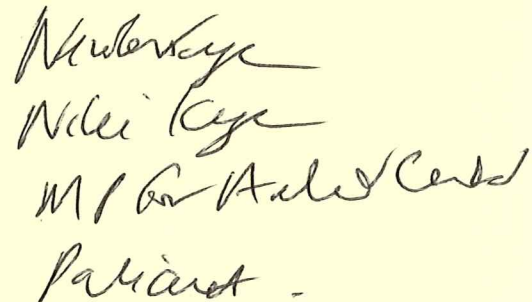 Nikki Kaye
Nikki Kaye
MP for Auckland Central
Parliament.